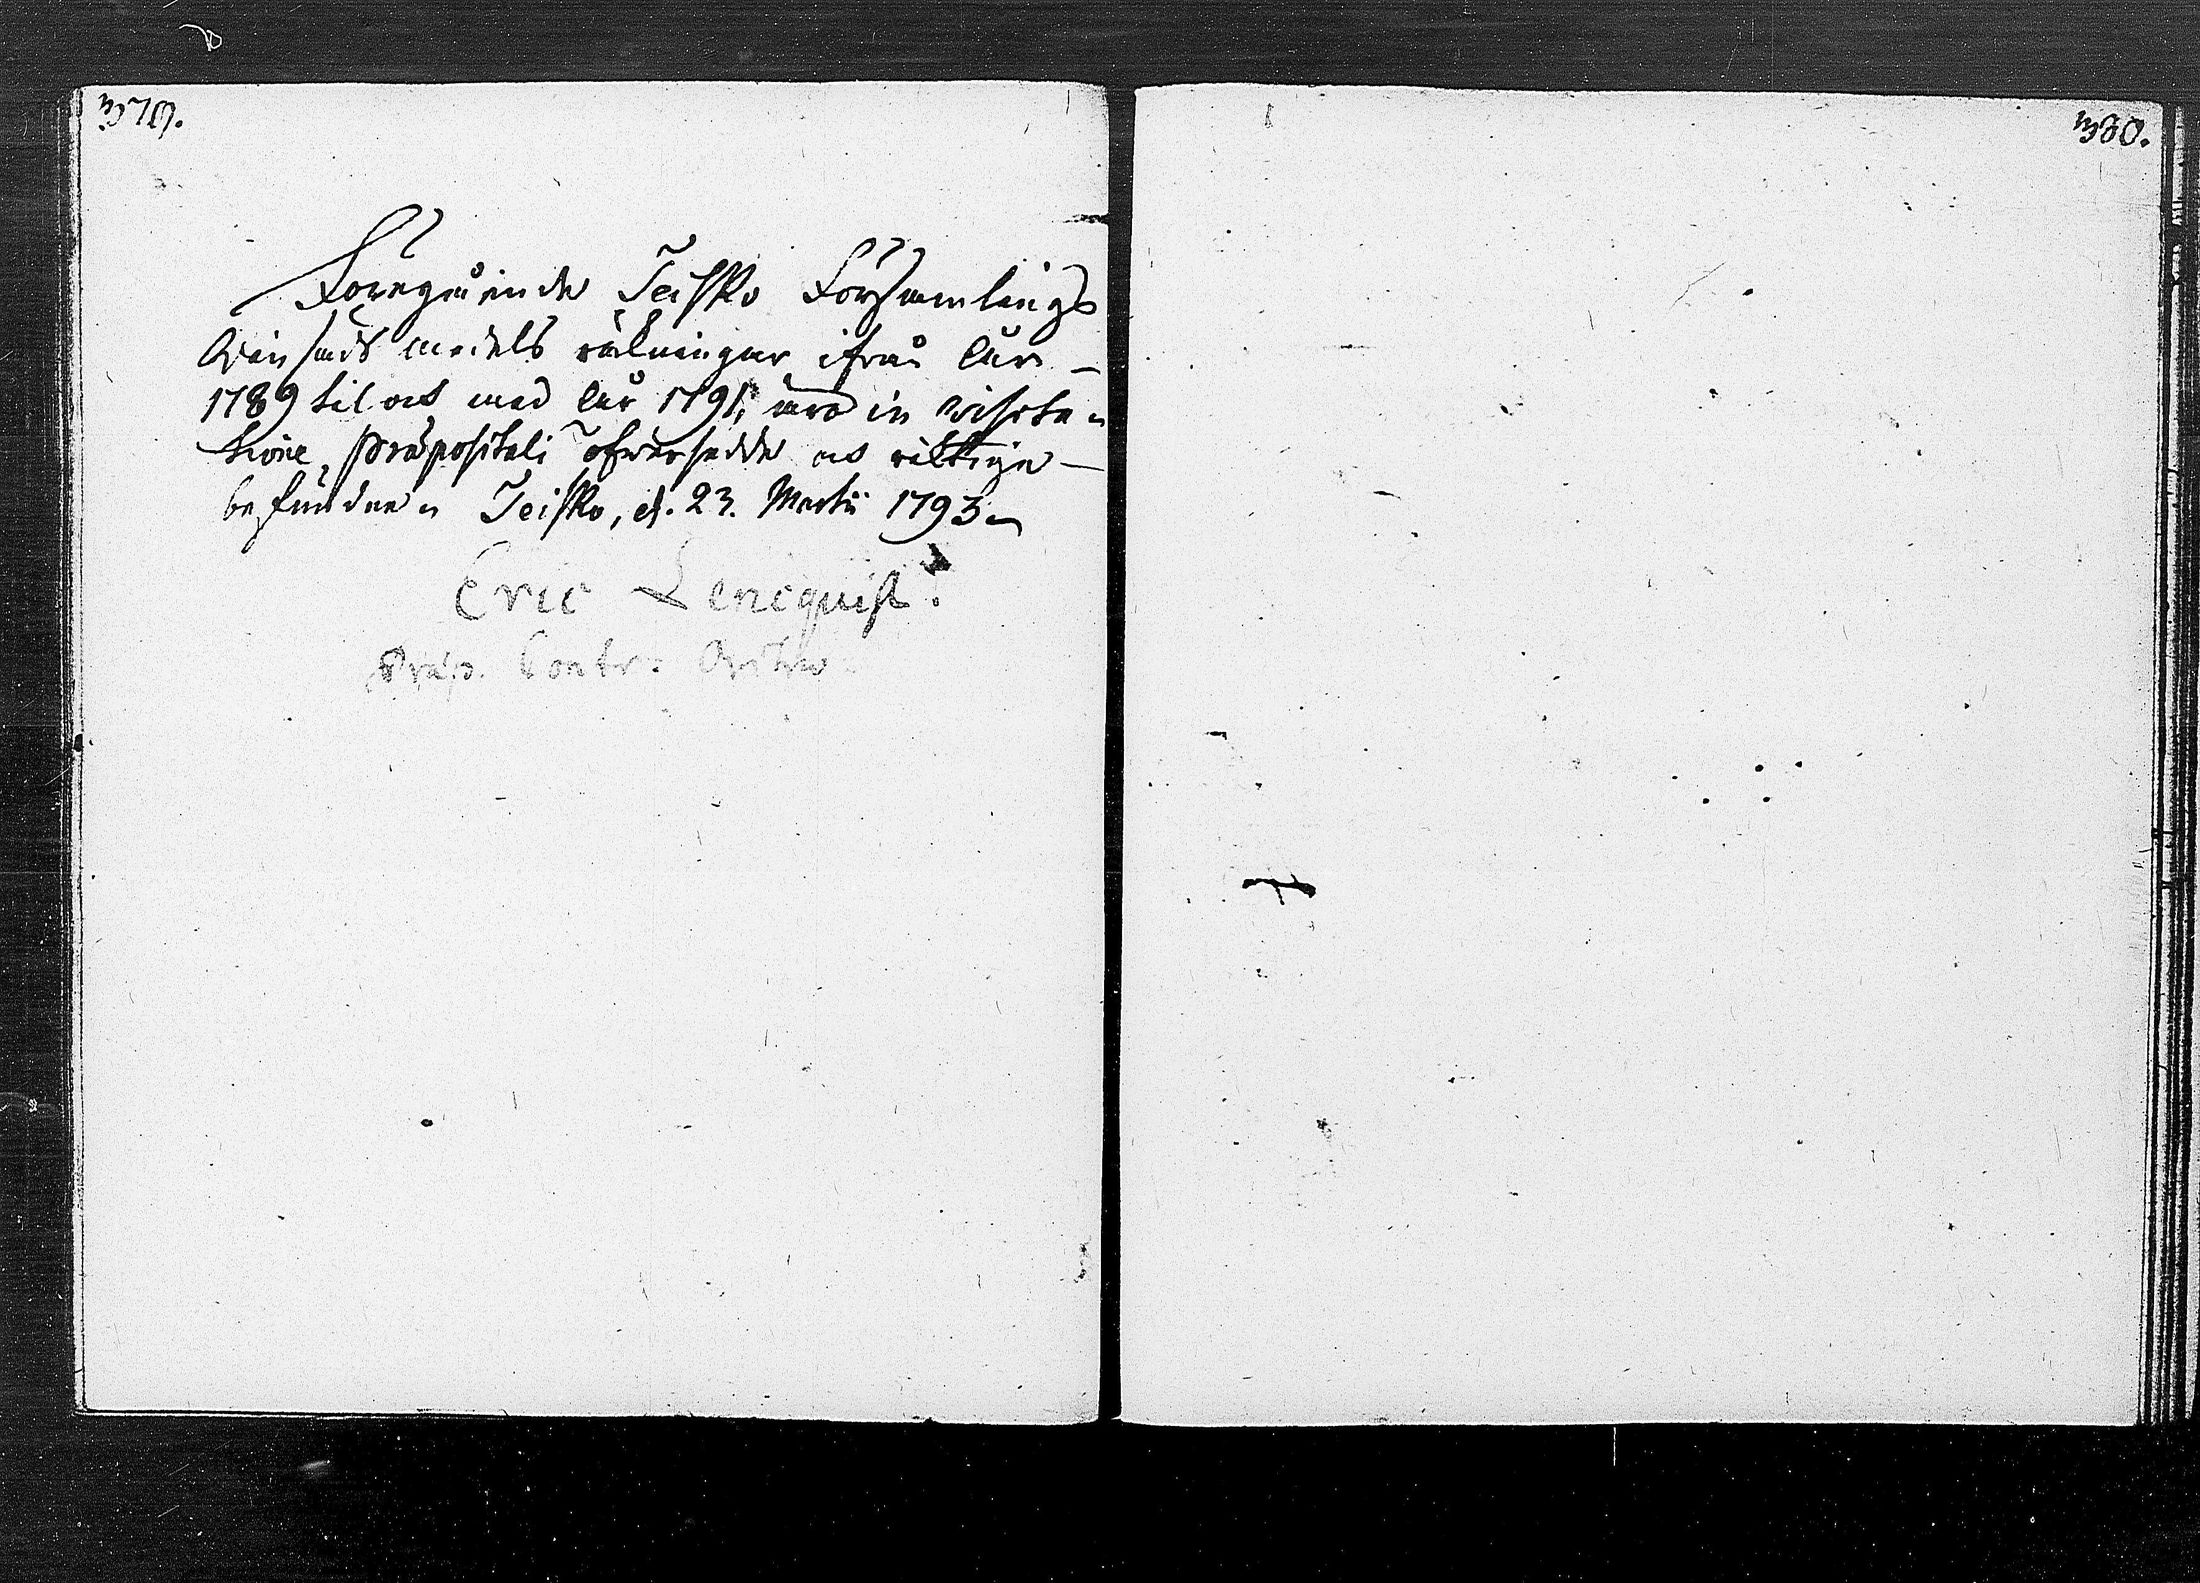 379.
380.
Föregående Teisko Församlings
Qvinsauds medels räkningar ifrån år
1789 til och med år 1791, äro in Visita-
tione Præpositali öfversedde och riktige
befundne. Teisko, d. 23. Martii 1793.
Eric Lencquist.
Præp. Contr.